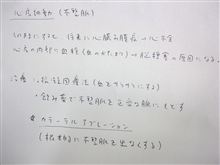 心房細動（不整脈）
いままですると、将来に心臓の働き → 心不全
心房の内部に血栓（血のかたまり） → 脳梗塞の原因になる。
治療 ・抗凝固療法（血をサラサラにする）
・飲み薬で不整脈を正常な脈にもどす
＊カテーテルアブレーション
（根本的に不整脈を出なくする）